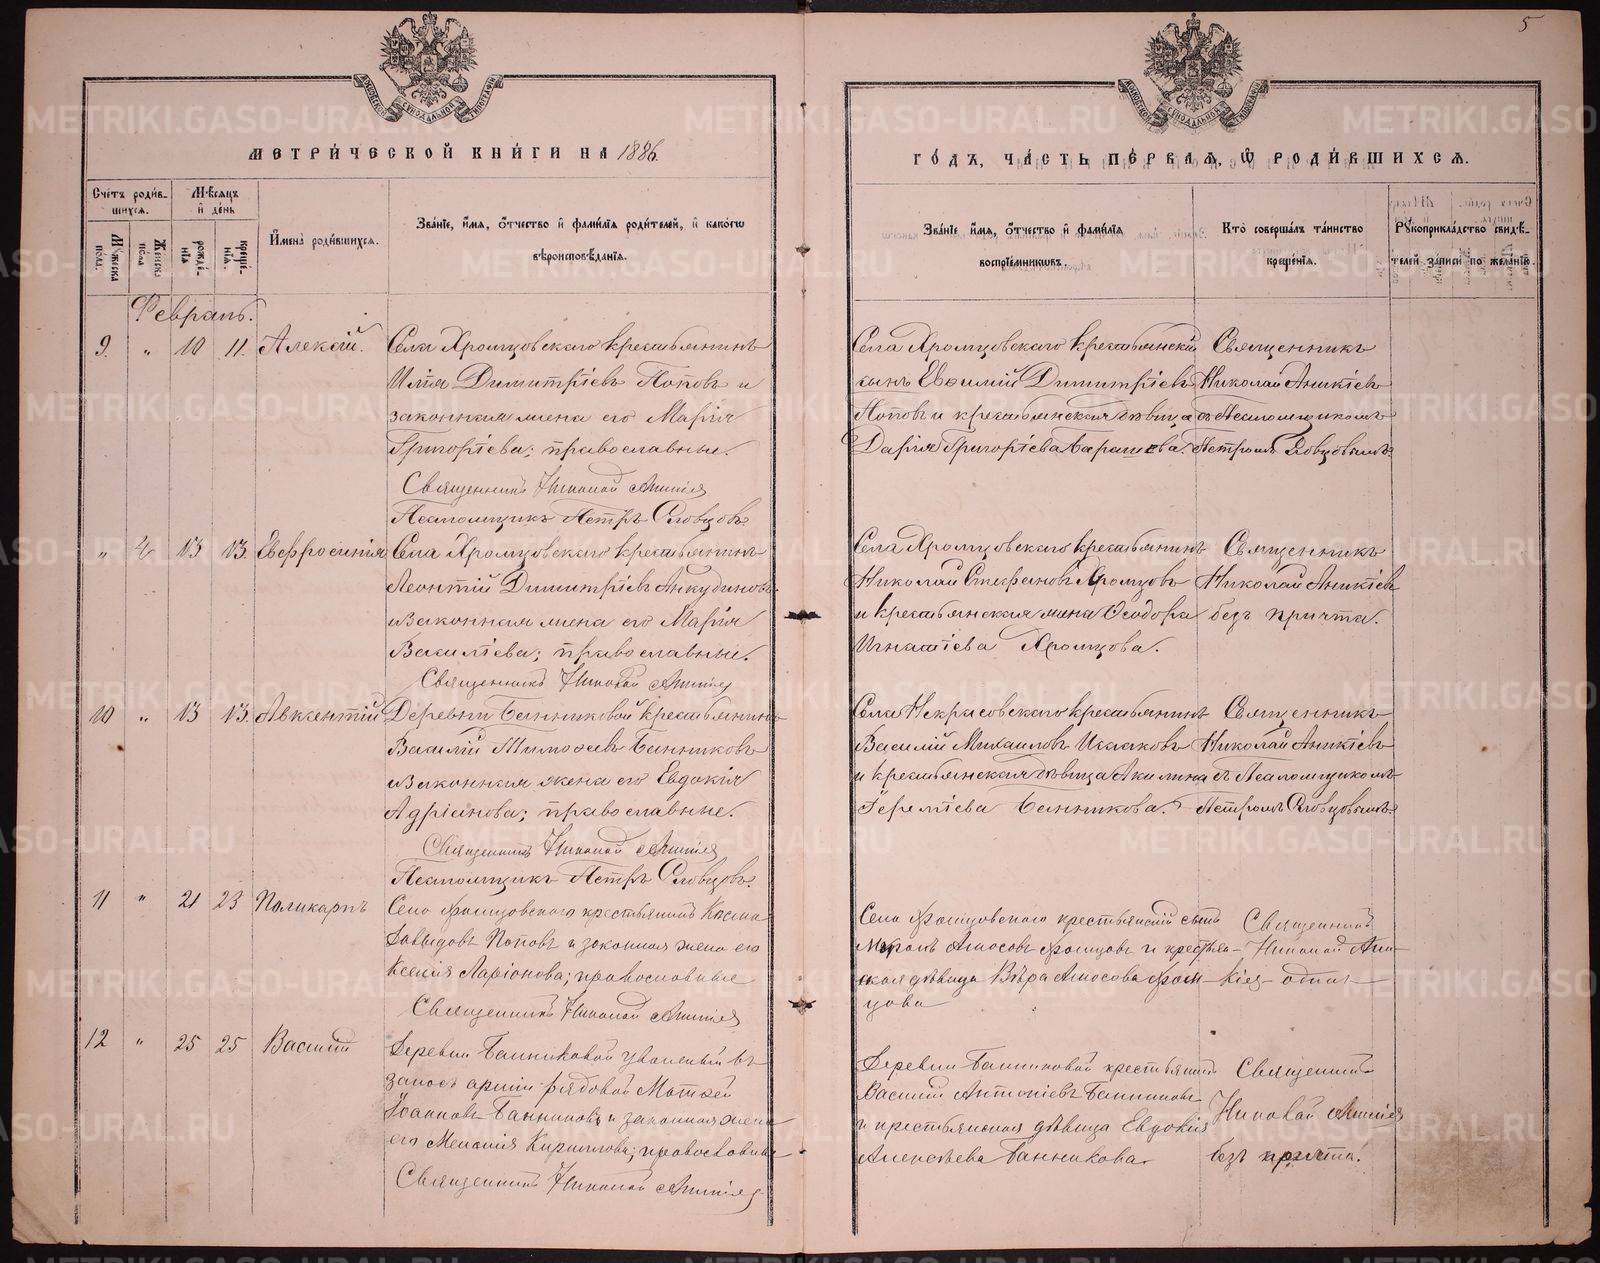 5
МЕТРИ́ЧЕСКОЙ КНИ́ГИ НА 1886.
ГО́ДЪ, ЧА́СТЬ ПЕ́РВАѦ, Ѡ҆ РОДИ́ВШИХСѦ.
Счетъ роди́вшихсѧ.
Мꙋ́жеска по́ла.
Же́нска по́ла.
Мѣ́сѧцъ и҆ де́нь
рожде́нїѧ.
креще́нїѧ.
И҆мена̀ роди́вшихсѧ.
Зва́нїе, и҆́мѧ, ѻ҆́тчество и҆ фами́лїѧ роди́телей, и҆ како́гѡ
вѣроисповѣ́данїѧ.
Зва́нїе, и҆́мѧ, ѻ҆́тчество и҆ фами́лїѧ
воспрїе́мникѡвъ.
Кто̀ соверша́лъ та́инство
креще́нїѧ.
Рꙋкоприкла́дство свидѣ́-
телей за́писи по жела́нїю.
Февраль.
9. " 10 11. Алексій.
Села Хромцовскаго крестьянинъ
Илія Димитріевъ Поповъ и
законная жена его Марія
Григоріева; православные.
Священникъ Николай Аникіев
Псаломщикъ Петръ Словцовъ.
Села Хромцовскаго крестьянскій
сынъ Евѳимій Димитріевъ
Поповъ и крестьянская дѣвица
Дарія Григоріева
Священникъ
Николай Аникіевъ
съ Псаломщикомъ
Петромъ Словцовымъ.
" 4 13 13. Евфросинія
Села Хромцовскаго крестьянинъ
Леонтій Димитріевъ Анкудиновъ
и законная жена его Марія
Василіева; православные.
Священникъ Николай Аникіев
Села Хромцовскаго крестьянинъ
Николай Стефановъ Хромцовъ
и крестьянская жена Ѳеодора
Игнатіева Хромцова.
Священникъ
Николай Аникіевъ
безъ причта.
10 " 13 13. Авксентій
Деревни Банниковой крестьянинъ
Василій Тимоѳеевъ Банниковъ
и законная жена его Евдокія
Адріанова; православные.
Священникъ Николай Аникіев
Псаломщикъ Петръ Словцовъ.
Села Некрасовскаго крестьянинъ
Василій Михаиловъ Исаковъ
и крестьянская дѣвица Акилина
Іереміева Банникова.
Священникъ
Николай Аникіевъ
съ Псаломщикомъ
Петромъ Словцовымъ.
11 " 21 23 Поликарпъ
Села Хромцовского крестьянинъ Косма
Давыдовъ Поповъ и законная жена его
Ксенія Ларіонова; православные
Священникъ Николай Аникіев
Села Хромцовского крестьянскій сынъ
Амосовъ Хромцовъ и крестьян-
ская дѣвица Вѣра Амосова Хром-
цова
Священникъ
Николай Ани-
кіев
12 " 25 25 Василій
Деревни Банниковой уволеный въ
запасъ арміи рядовой Матѳей
Іоанновъ Банниковъ и законная жена
его Меланія Кириллова; православные
Священникъ Николай Аникіев
Деревни Банниковой крестьянинъ
Василій Антоніевъ Банниковъ
и крестьянская дѣвица Евдокія
Алексѣева Банникова.
Священникъ
Николай Аникіев
безъ причта.
METRIKI.GASO-URAL.RU